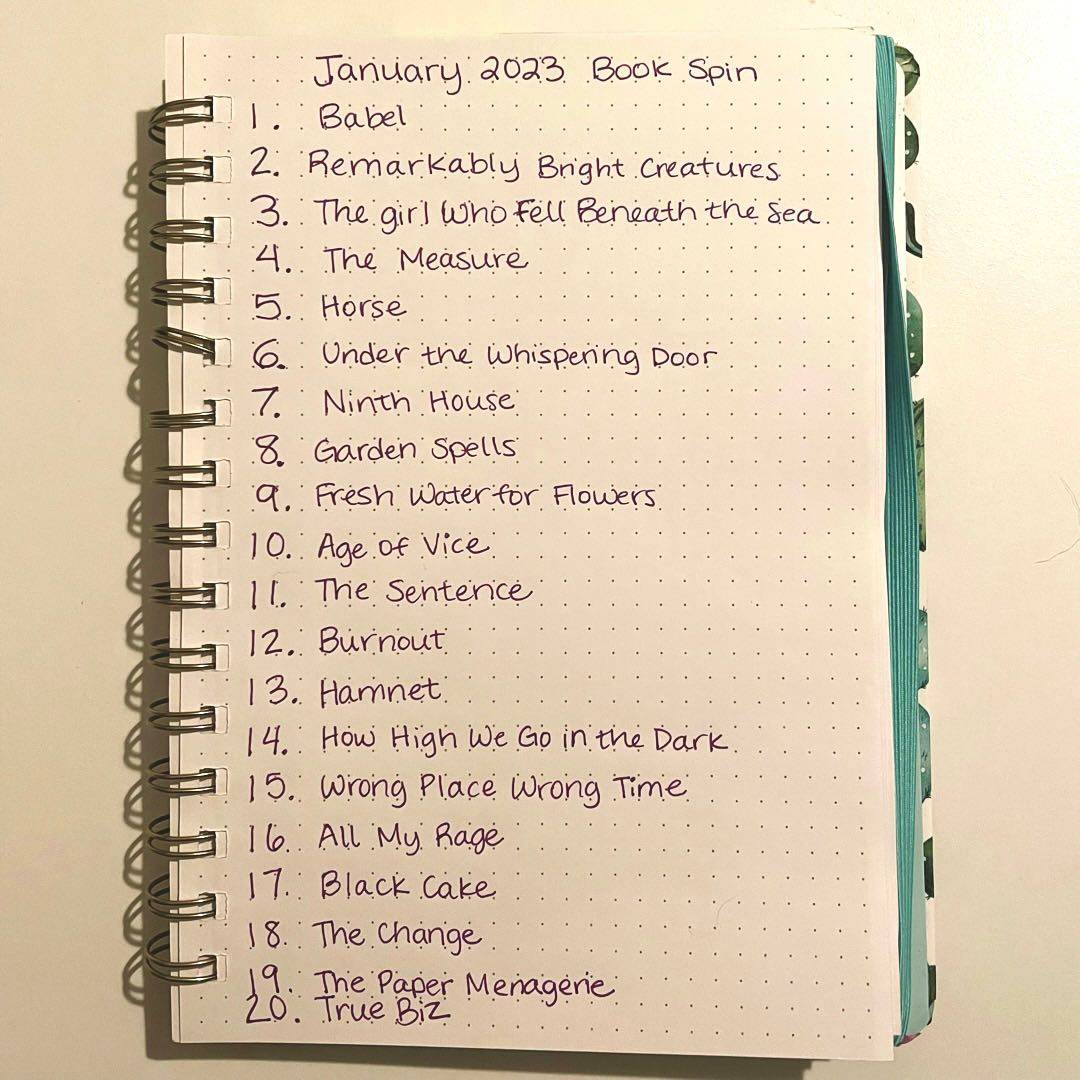 January 2023 Book Spin
1. Babel
2. Remarkably Bright Creatures
3. The girl Who Fell Beneath the Sea
4. The Measure
5. Horse
6. Under the Whispering Door
7. Ninth House
8. Garden Spells
9. Fresh Water for Flowers
10. Age of Vice
11. The Sentence
12. Burnout
13. Hamnet
14. How High We Go in the Dark
15. Wrong Place Wrong Time
16. All My Rage
17. Black Cake
18. The Change
19. The Paper Menagerie
20. True Biz